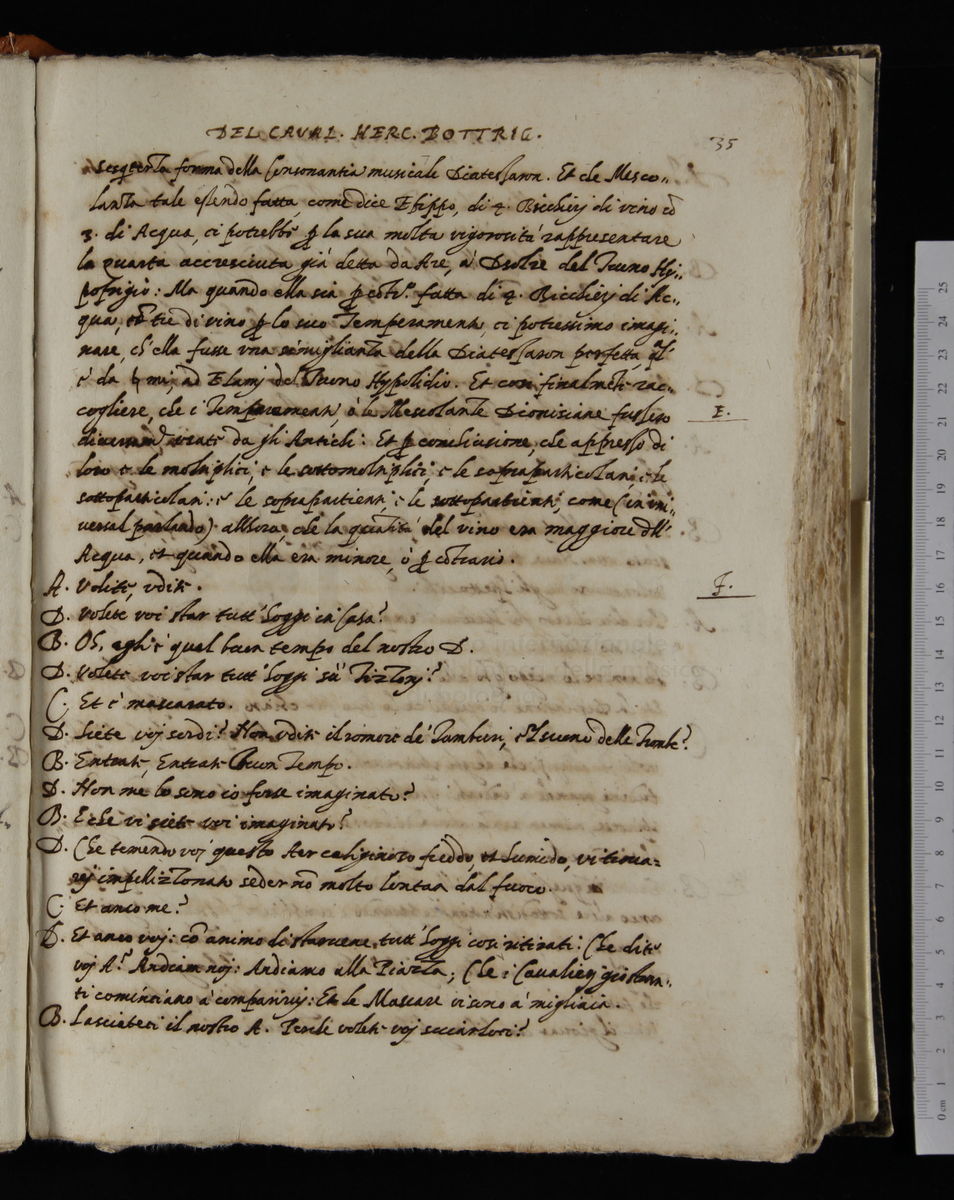 DEL CAVAL. HERC. BOTTRIG.
35
Sesqterza forma della Consonantia musicale Diatessaron. Et che Mesco„
lanza tale essendo fatta, come dice Efippo, di 4. Bicchierj di vino cō
3. di Acqua, ci potrebbe p la sua molta vigorosità rappresentare
la quarta accresciuta già detta da Are, à Dsolre del Tuono Hy„
pofrigio: Ma quando ella sia p cōt.º fatta di 4. Bicchierj di Ac„
qua, cō tre di vino p lo suo Temperamento ci potessimo imagi„
nare, ch'ella fusse vna simiglianza della Diatessaron perfetta, ql'
è da ♮ mi, ad Elamj del Tuono Hypolidio. Et cosi finalmēte rac„
cogliere, che i Temperamenti, ò le Mescolanze Dionisiane fussero
E.
usate da gli Antichi: Et p conclusione, che appresso di
loro e le moltiplici, e le sottomoltiplici, e le sopraparticolari, e le
sottoparticolari: e le soprapartienti, e le sottopartienti, come (in vni„
versal parlando) allora, che la quātità del vino era maggiore dll'
Acqua, et quando ella era minore, ò p cōtrario.
A. Volite, vdite.
F.
D. Volete voi star tutt'hoggi in Casa?
B. Oh, egli è quel buon tempo del nostro D.
D. Volete voi star tutt'hoggi sù Tizzonj?
C. Et è mascarato.
D. Siete voj sordi? Non vdite il romore de' Tamburi, e 'l suono delle Trombe?
B. Entrate, Entrate Buon Tempo.
D. Non me lo sono io forse imaginato?
B. E che vi siete voi imaginato?
D. Che temendo voj questo Aer caliginoso freddo, et humido, vi trova=
rej impellizzonato seder nō molto lontan dal fuoco.
C. Et anco me?
D. Et anco voj: cō animo di starvene tutt'hoggi cosi ritirati: Che dite
voj A? Andiam noj: Andiamo alla Piazza; Che i Cavalierj giostran„
ti cominciano à comparirvj: Et le Mascare vi sono à migliaia.
B. Lasciateci il nostro A. Perche volete voj sviarloci?